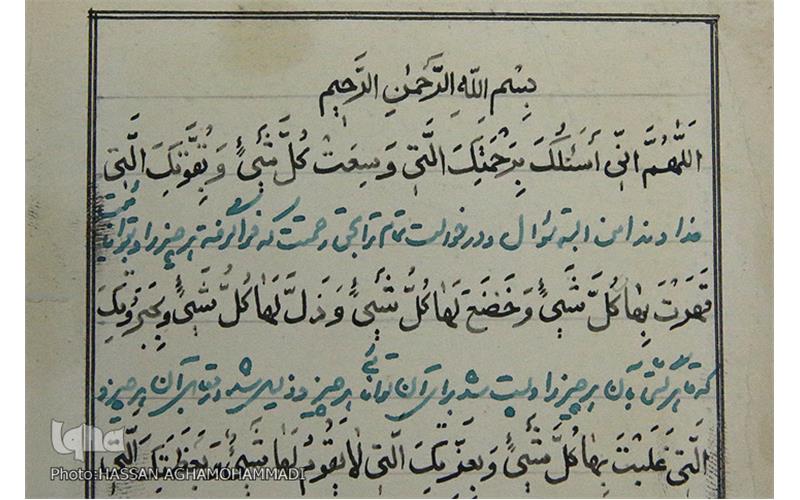 بِسْمِ اللهِ الرَّحْمٰنِ الرَّحِيمِ
اَللّٰهُمَّ اِنّٖی أَسْئَلُكَ بِرَحْمَتِكَ الَّتٖی وَسِعَتْ كُلَّ شَیْءٍ وَ بِقُوَّتِكَ الَّتٖی
خداوندا من البته سؤال و درخواست تمام ترا بحق رحمتت که فرا گرفته هر چیز را و توانائیت
قَهَرْتَ بِهٰا كُلَّ شَیْءٍ وَ خَضَعَ لَهٰا كُلُّ شَیْءٍ وَ ذَلَّ لَهٰا كُلُّ شَیْءٍ وَ بِجَبَرُوتِكَ
که بآن هر چیز را و شد برای آن توانائی هر چیز و ذلیل شد برای آن هر چیز و
الَّتٖی غَلَبْتَ بِهٰا كُلَّ شَیْءٍ وَ بِعِزَّتِكَ الَّتٖی لٰا يَقُومُ لَهٰا شَیْءٌ وَ بِعَظَمَتِكَ الَّتٖی
iqna
Photo:HASSAN AGHAMOHAMMADI